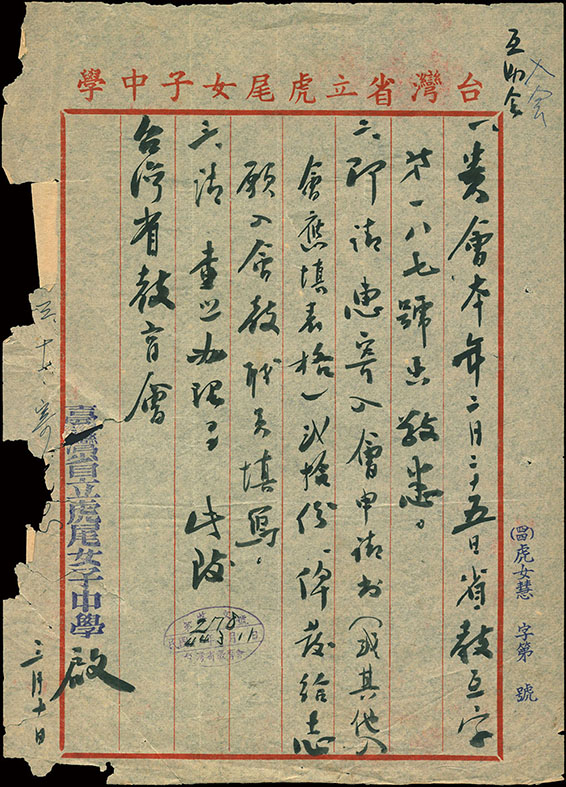 台灣省立虎尾女子中學
互助會
入會
(四)虎女慧 字第 號
一、貴會本年二月二十五日省教互字
第一八七號函敬悉。
二、即請惠寄入會申請書(或其他入
會應填表格)貳拾份、俾發給志
願入會教職員填寫。
三、請查照辦理為荷 此致
台灣省教育會
臺灣省立虎尾女子中學
啟
三月十日
278